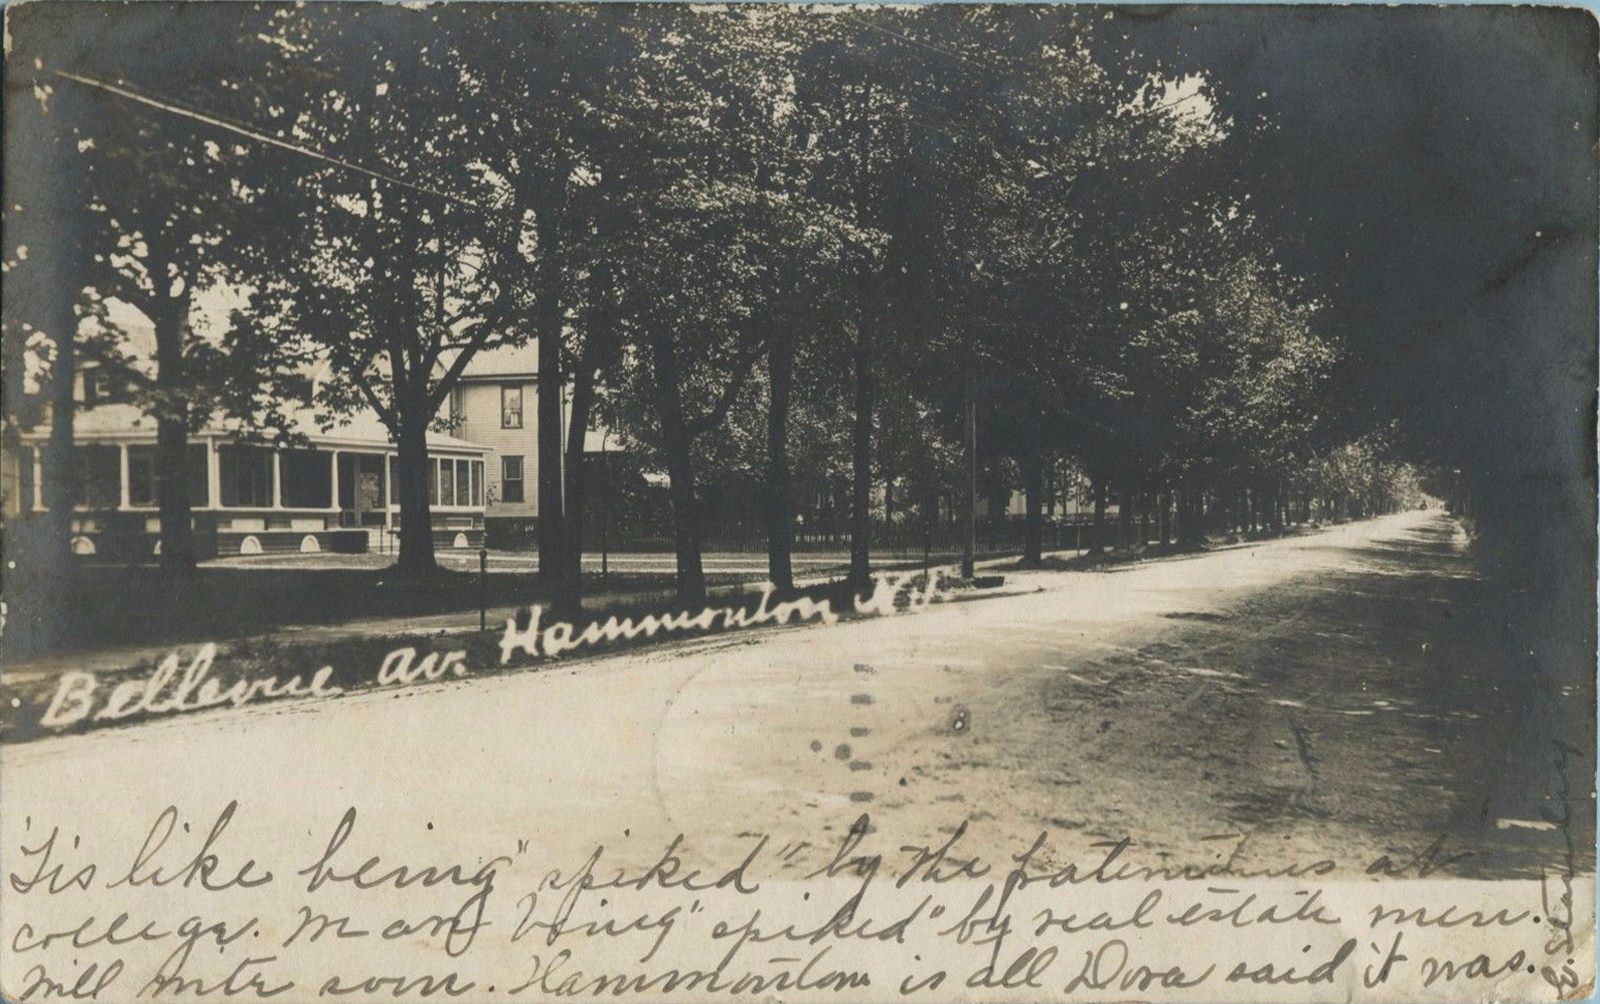 Bellevue Av. Hammonton N.J.
'Tis like being "spiked" by the fraternities at
college. Man being "spiked" by real estate men.
Will write soon. Hammonton is all Dora said it was.